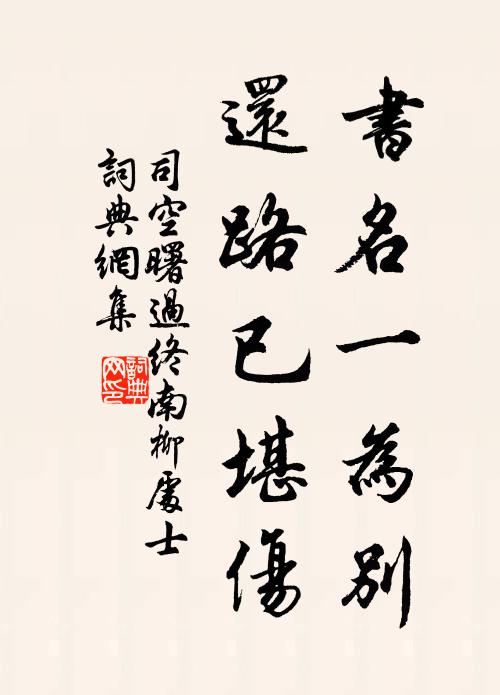 書名一為別
還路已堪傷
司空曙過終南柳處士
詞典網集
詞典網印